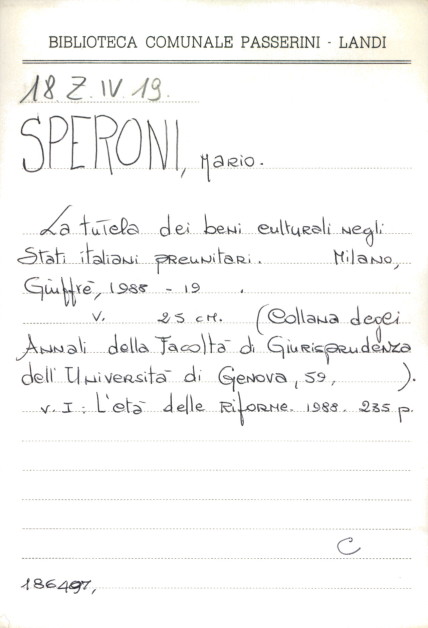 BIBLIOTECA COMUNALE PASSERINI - LANDI
18. Z. IV 19.
SPERONI, Mario.
La tutela dei beni culturali negli
Stati italiani preunitari. Milano,
Giuffrè, 1988 - 19 .
v. 25 cm. (Collana degli
Annali della Facoltà di Giurisprudenza
dell'Università di Genova, 59, ).
v. I: L'età delle Riforme. 1988. 235 p.
C
186497,